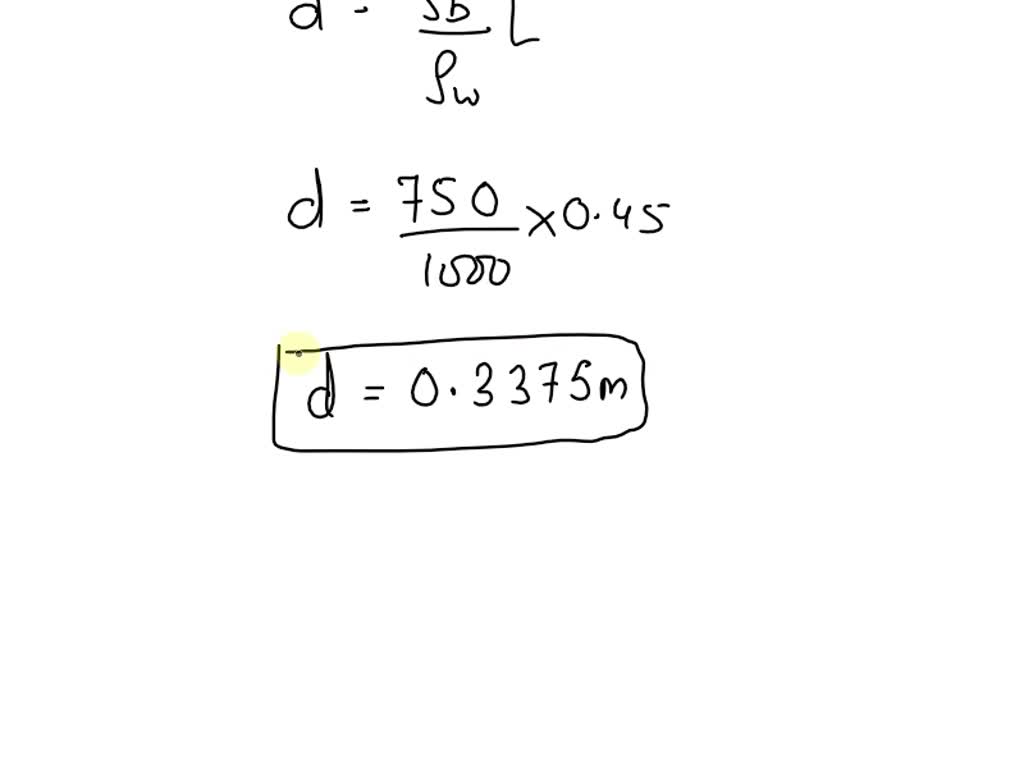 d = ρb/ρw L
d = 750/1000 × 0.45
d = 0.3375m